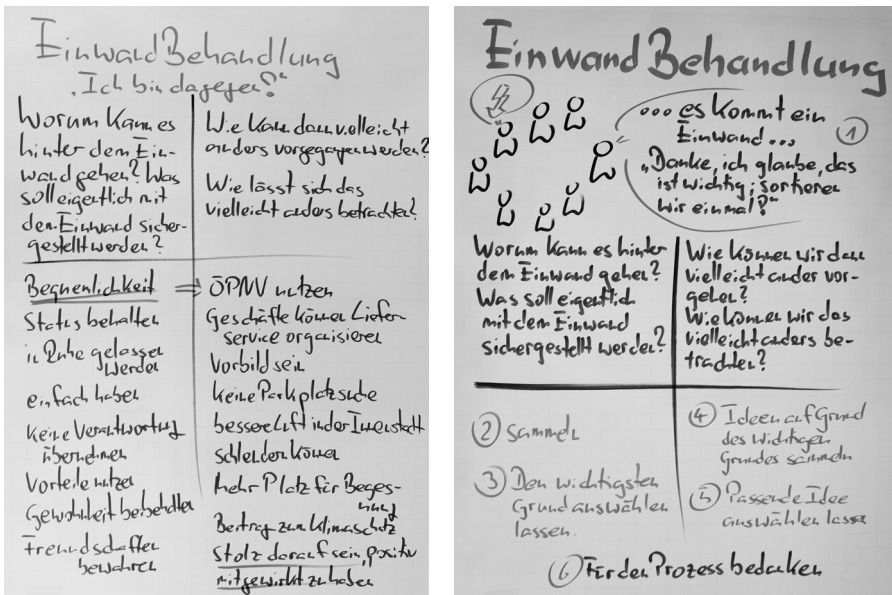 EinwandBehandlung
„Ich bin dagegen?“
Worum kann es
hinter dem Ein-
wand gehen? Was
soll eigentlich mit
dem Einwand sicher-
gestellt werden?
Wie kann dann vielleicht
anders vorgegangen werden?
Wie lässt sich das
vielleicht anders betrachten?
Bequemlichkeit ⇒
Status behalten
in Ruhe gelassen
werden
einfach haben
keine Verantwortung
übernehmen
Vorteile nutzen
Gewohnheit beibehalten
Freundschaften
bewahren
ÖPNV nutzen
Geschäfte können Liefer-
service organisieren
Vorbild sein
keine Parkplatzsuche
bessere Luft in der Innenstadt
schlendern können
mehr Platz für Begeg-
nung
Beitrag zum Klimaschutz
Stolz darauf sein, positiv
mitgewirkt zu haben
EinwandBehandlung
... es kommt ein
Einwand...
①
„Danke, ich glaube, das
ist wichtig; sortieren
wir einmal?“
Worum kann es hinter
dem Einwand gehen?
Was soll eigentlich
mit dem Einwand
sichergestellt werden?
Wie können wir dann
vielleicht anders vor-
gehen?
Wie können wir das
vielleicht anders be-
trachten?
② sammeln
③ Den wichtigsten
Grund auswählen
lassen.
④ Ideen aufGrund
des wichtigen
Grundes sammeln
⑤ Passende Idee
auswählen lassen
⑥ Für den Prozess bedanken